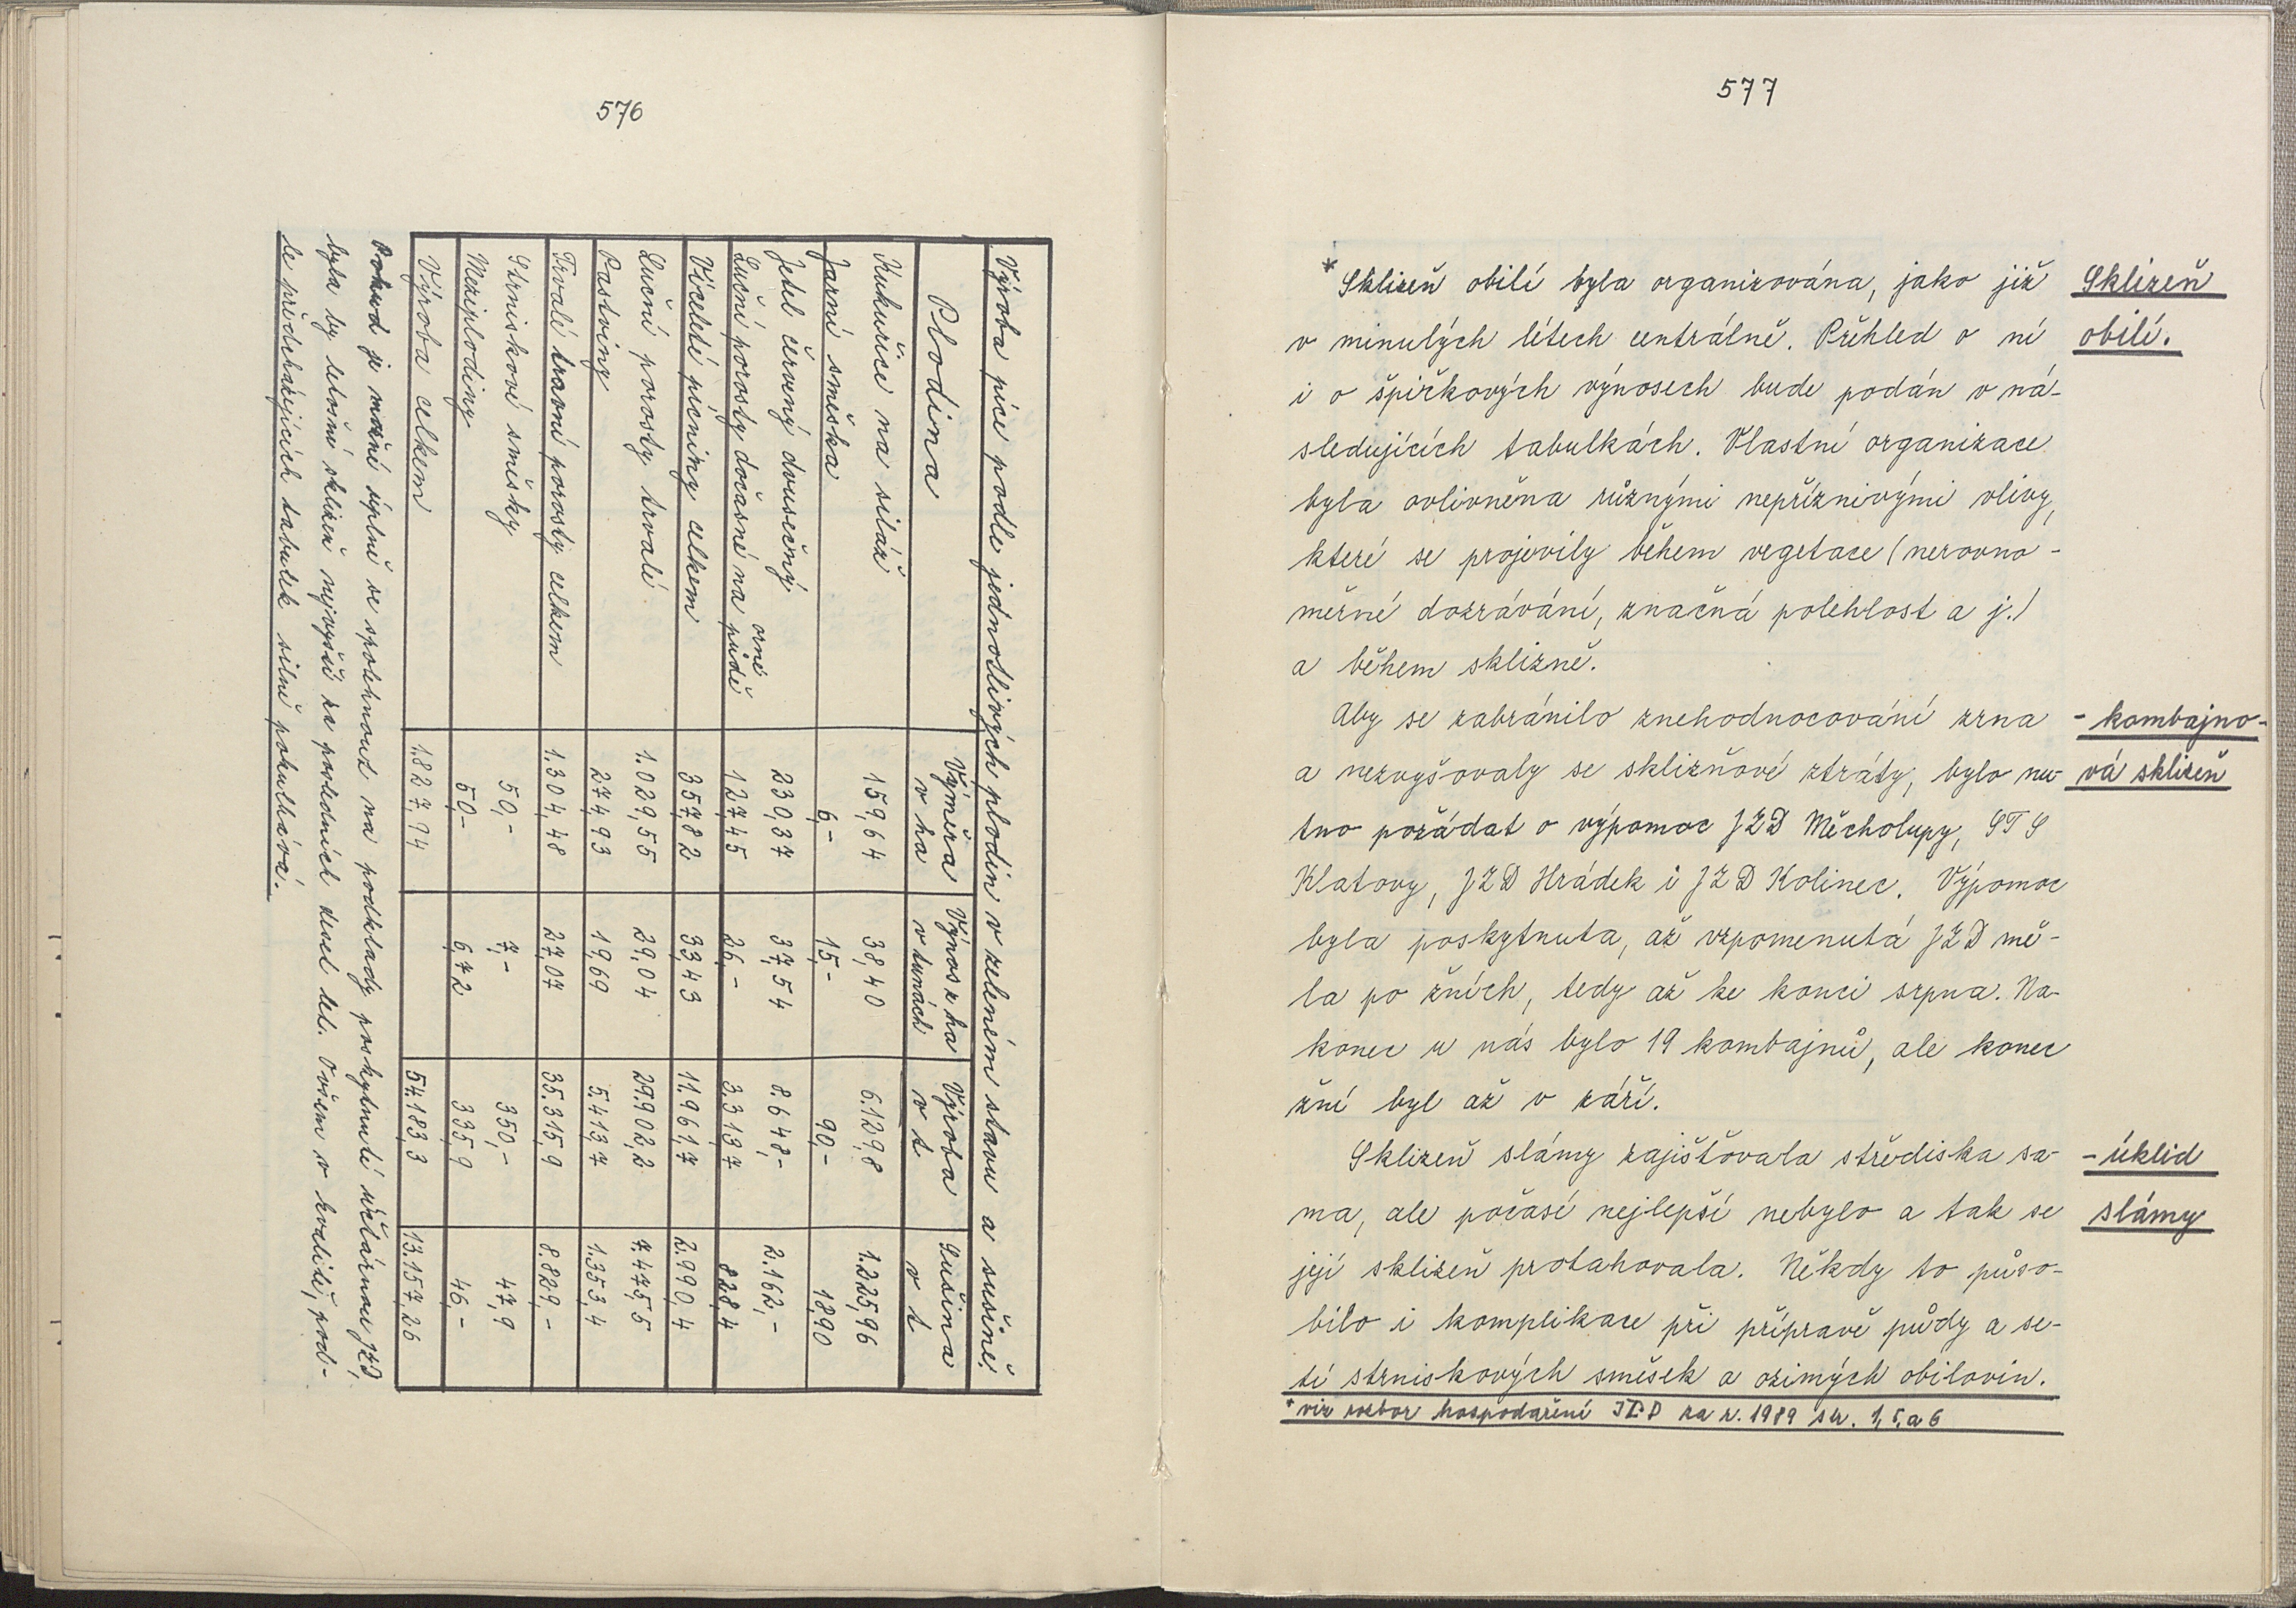 576
Výroba píce podle jednotlivých plodin v zeleném stavu a sušině.
Plodina Výměra v ha Výnos z ha v tunách Výroba v t Sušina v t
Kukuřice na siláž 159,64 38,40 6.129,8 1.225,96
Jarní směska 6,- 15,- 90,- 18,90
Jetel červený dvusečný 230,37 37,54 8.648,- 2.162,-
Luční porosty dočasné na orné půdě 127,45 26,- 3.313,7 828,4
Víceleté pícniny celkem 357,82 33,43 11.961,7 2.990,4
Luční porosty trvalé 1.029,55 29,04 29.902,2 7.475,5
Pastviny 274,93 19,69 5.413,7 1.353,4
Trvalé travní porosty celkem 1.304,48 27,07 35.315,9 8.829,-
Strniskové směsky 50,- 7,- 350,- 47,9
Meziplodiny 50,- 6,72 335,9 46,-
Výroba celkem 1.827,94 54.183,3 13.157,26
Pokud je možné úplně se spolehnout na podklady poskytnuté účtárnou JZD,
byla by letošní sklizeň nejvyšší za posledních deset let. Ovšem v kvalitě, pod-
le předcházejících tabulek silně pokulhává.
577
* Sklizeň obilí byla organizována, jako již
v minulých létech centrálně. Přehled o ní
i o špičkových výnosech bude podán v ná-
sledujících tabulkách. Vlastní organizace
byla ovlivněna různými nepříznivými vlivy,
které se projevily během vegetace (nerovno-
měrné dozrávání, značná polehlost a j.)
a během sklizně.
Sklizeň
obilí.
Aby se zabránilo znehodnocování zrna
a nezvyšovaly se sklizňové ztráty, bylo nu-
tno požádat o výpomoc JZD Měcholupy, STS
Klatovy, JZD Hrádek i JZD Kolinec. Výpomoc
byla poskytnuta, až vzpomenutá JZD mě-
la po žních, tedy až ke konci srpna. Na-
konec u nás bylo 19 kombajnů, ale konec
žní byl až v září.
- kombajno-
vá sklizeň
Sklizeň slámy zajišťovala střediska sa-
ma, ale počasí nejlepší nebylo a tak se
její sklizeň protahovala. Někdy to půso-
bilo i komplikace při přípravě půdy a se-
tí strniskových směsek a ozimých obilovin.
- úklid
slámy
* viz rozbor hospodaření JZD za r. 1989 str. 1, 5, a 6